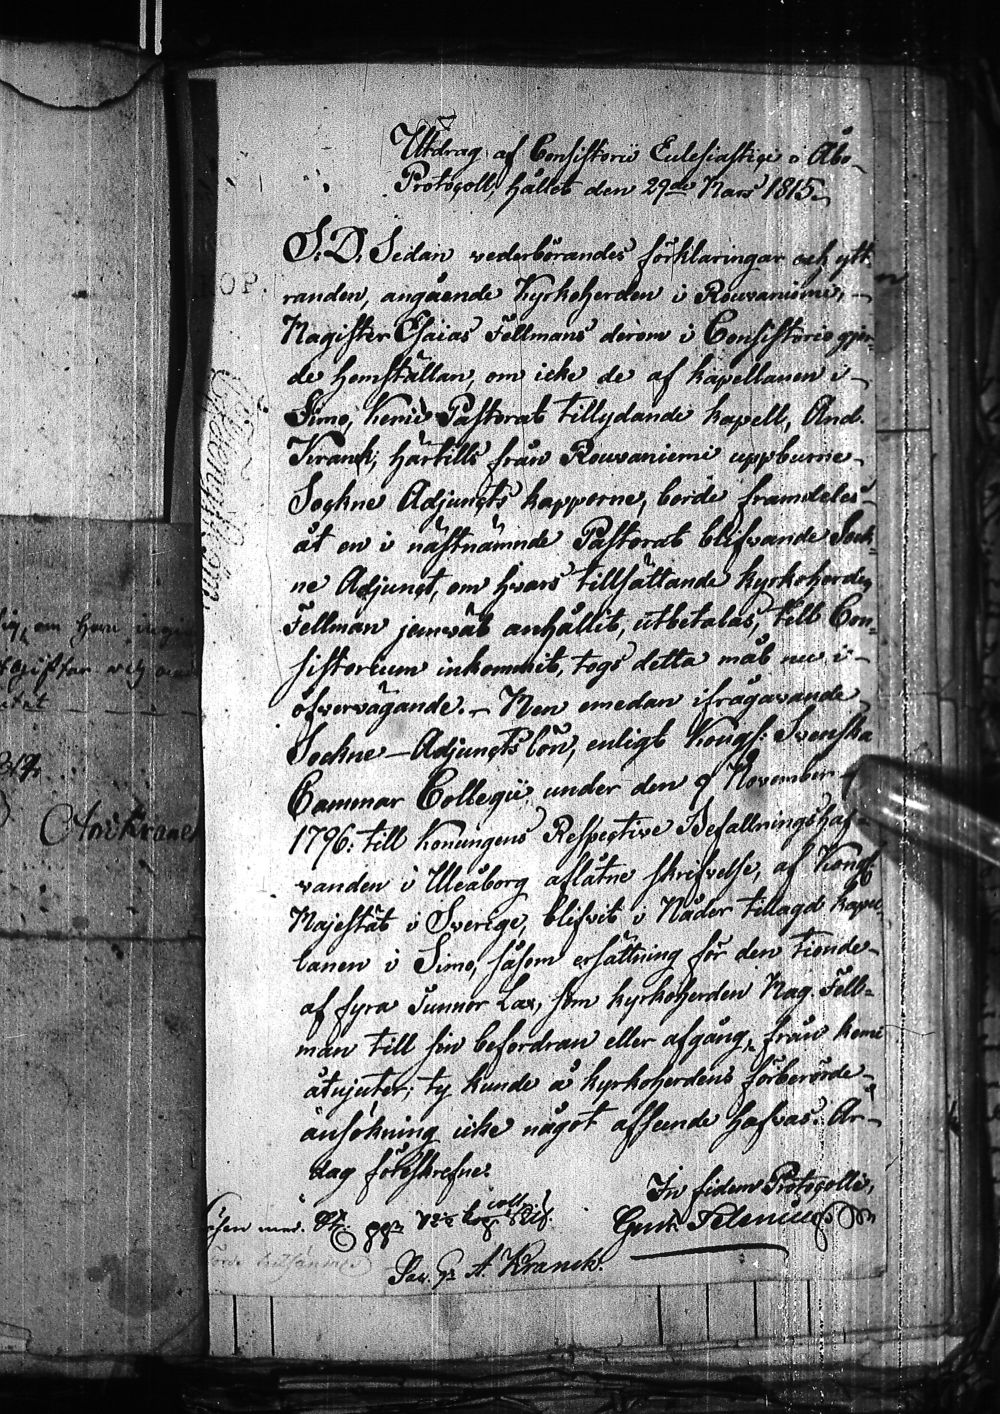 Utdrag af Consistorii Eclesiastici i Åbo
Protocoll, hållet den 29de Mars 1815.
S. D. Sedan vederbörandes förklaringar och ytt-
randen, angående Kyrkoherden i Rouvaniemi,
Magister Esaias Fellmans derom i Consistorio gjor-
de hemställan, om icke de af kapellanen i
Simo, Kemi Pastorat tillydande kapell, And.
Kranck, härtills från Rouvaniemi uppburne
Sockne Adjuncts kapporne, borde framdeles
åt en i nästnämnde Pastorat blifvande Sock-
ne Adjunct, om hvars tillsättande kyrkoherden
Fellman jemväl anhållit, utbetalas, till Con-
sistorium inkommit, togs detta mål nu i
öfvervägande. – Men emedan ifrågavande
Sockne-Adjuncts lön, enligt Kongl. Svenska
Cammar Collegii under den 9 November
1796 till Konungens Respective Befallningshaf-
vanden i Uleåborg aflåtne skrifvelse, af Kongl.
Majestät i Sverige, blifvit i Nåder tillagd kapel-
lanen i Simo, såsom ersättning för den tionde
af fyra Tunnor Lax, som kyrkoherden Mag. Fell-
man till sin befordran eller afgång från Kemi
åtnjuter; ty kunde å kyrkoherdens förberörde
ansökning icke något afseende hafvas. År
dag förëskrefne.
In fidem Protocolli,
Gust. Felenius
A. Kranck.
OP.
om hon
utgifter och
And Kranck